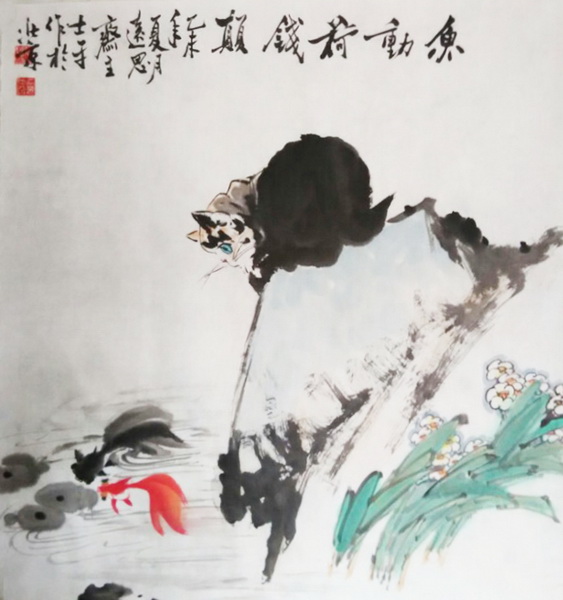 魚動荷錢顛
乙未年
夏月
遠思
齋主
士平
作於
北京